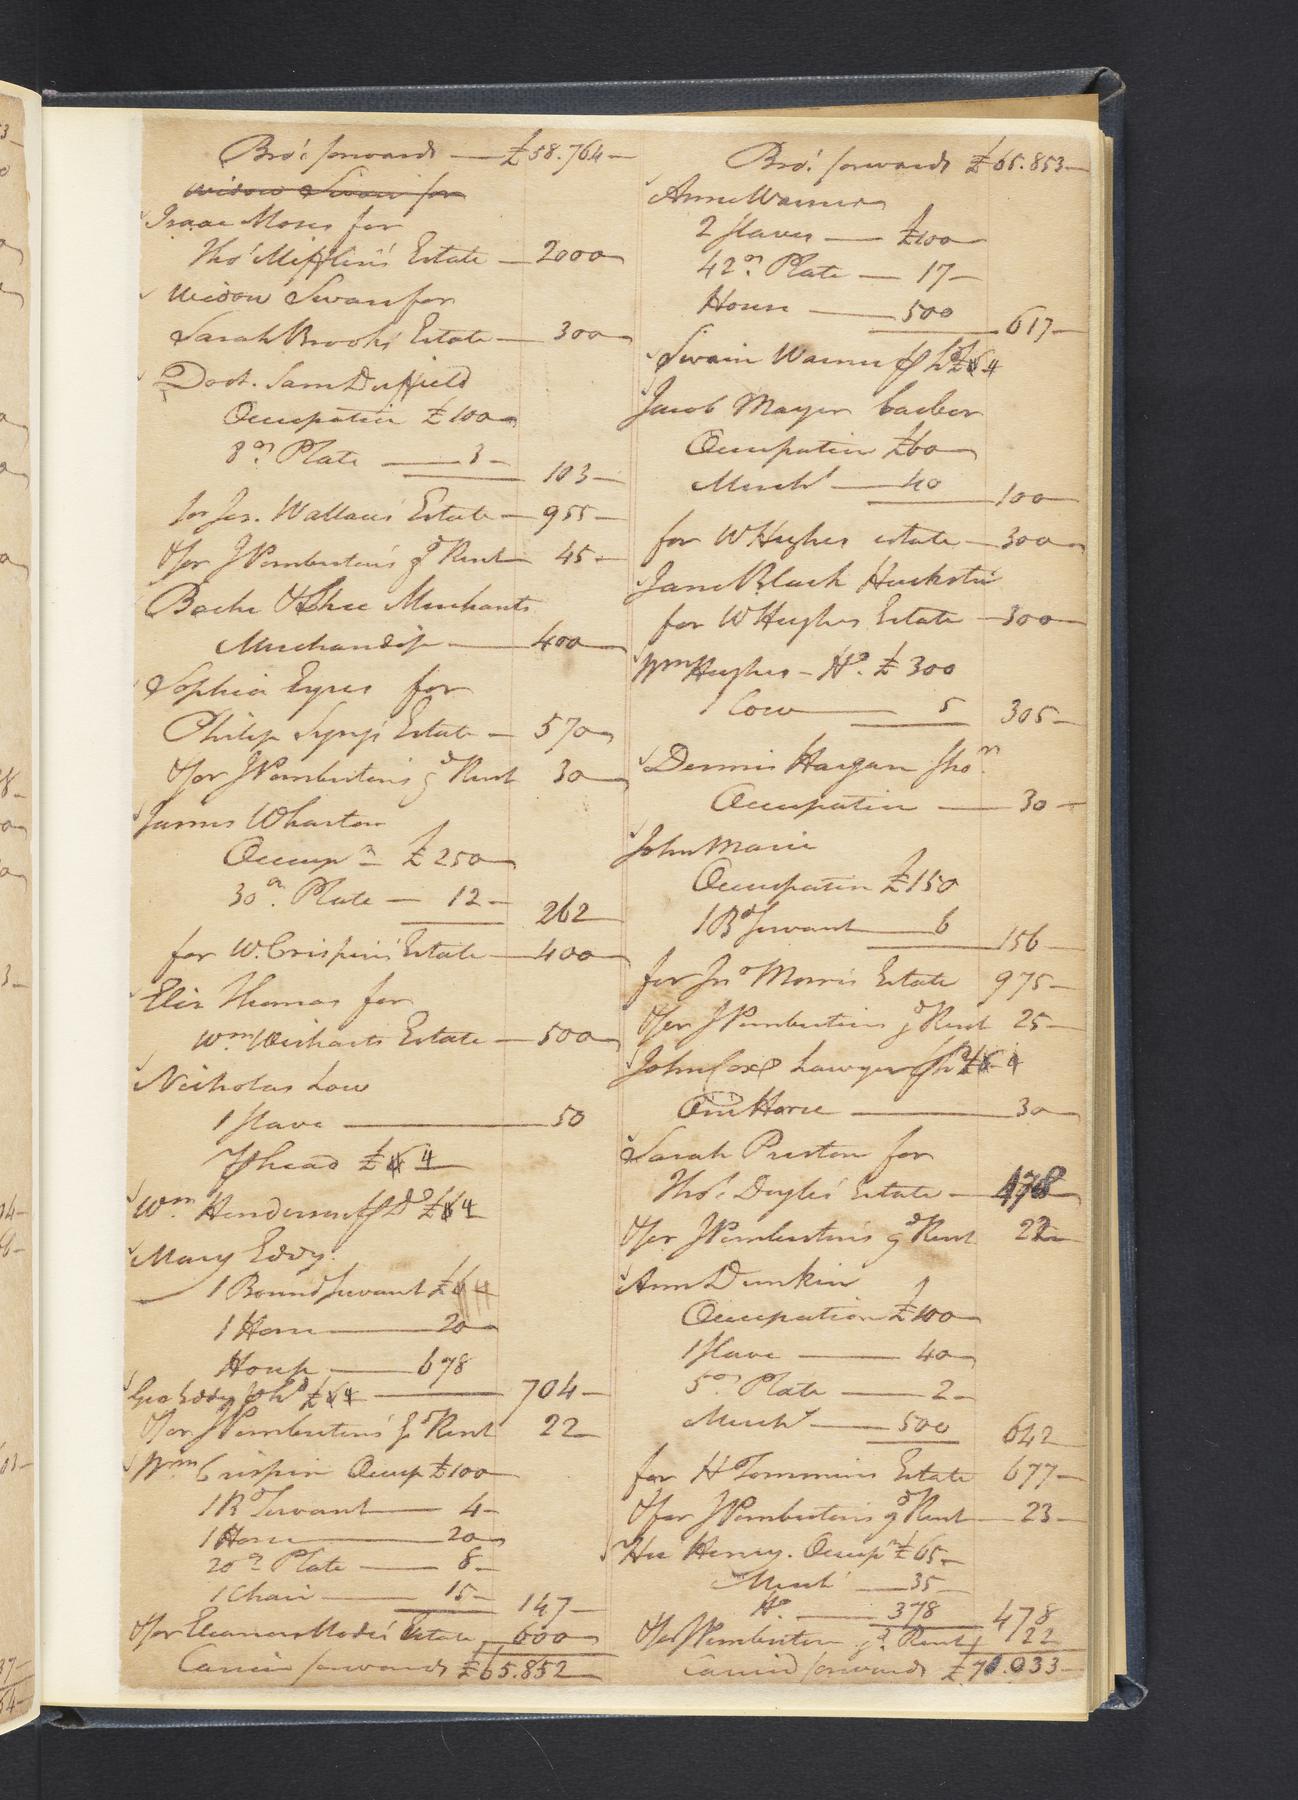 Bro.t forwards — £58.764
Widow Swan for
Isaac Moses for
Tho.s Mifflin's Estate — 2000
Widow Swan for
Sarah Brooks Estate — 300
Doct. Sam Duffield
Occupation £100
8 oz Plate — 3 — 103
for Jos. Wallace's Estate — 955
&for J Pemberton's gd Rent 45
Bache & Shee Merchants
Merchandise — 400
Sophia Eyres for
Philip Syng's Estate — 570
&for J Pemberton's gd Rent 30
James Wharton
Occupn £250
30 oz Plate — 12 — 262
for W. Crispin's Estate — 400
Eliz Thomas for
Wm Wishart's Estate — 500
Nicholas Low
1 slave — 50
p head £6 4
Wm Henderson p Do £6 4
Mary Eddy
1 Bound servant £6 4
1 Horse — 20
House — 678
Geo Eddy p hd £6 4 — 704
&for J Pemberton's gd Rent 22
Wm Crispin Occup £100
1 Bd Servant — 4
1 Horse — 20
20 oz Plate — 8
1 Chair — 15 — 147
&for Estate — 600
Carried forwards £65.852
Bro.t forwards £65.853
Anne Warner
2 slaves — £100
42 oz Plate — 17
House — 500 — 617
Swain Warner p hd £6 4
Jacob Mayer barber
Occupation £60
Merch.t — 40 — 100
for W Hughes estate — 300
Jane Black Huckster
for W Hughes Estate — 300
Wm Hughes — Ho. £300
1 Cow — 5 — 305
Dennis Hargan
Occupation — 30
John Marie
Occupation £150
1 Bd Servant — 6 — 156
for Jno Morris Estate 975
&for J Pemberton's gd Rent 25
John Coxe Lawyer p hd £6 4
One Horse — 30
Sarah Preston for
Tho.s Estate — 478
&for J Pemberton's gd Rent 22
Ann Dunkin
Occupation £100
1 slave — 40
5 oz Plate — 2
Merch.t — 500 — 642
for H Tommins Estate 677
&for J Pemberton's gd Rent — 23
Henry. Occupn £65
Merch.t — 35
Ho. — 378 — 478
&for J Pemberton gd. Rent 22
Carried forwards £71.033